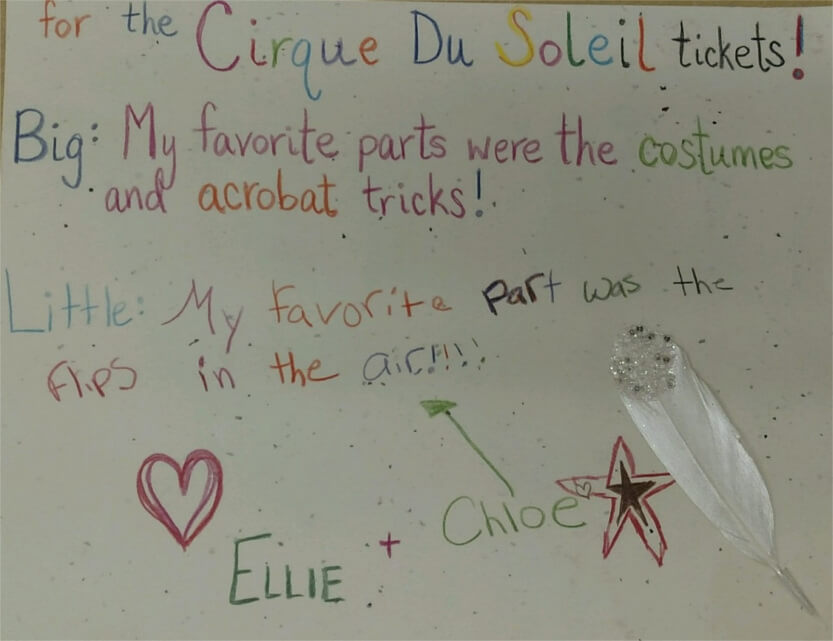 for the Cirque Du Soleil tickets!
Big: My favorite parts were the costumes
and acrobat tricks!
Little: My favorite part was the
flips in the air!!!!
Chloe
Ellie +